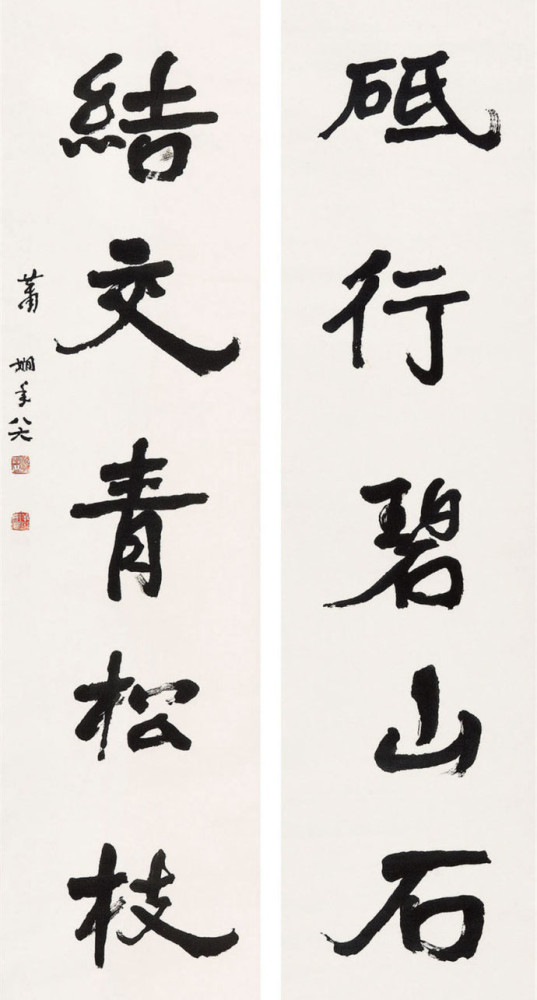 砥行碧山石
結交青松枝
蕭嫻年八六